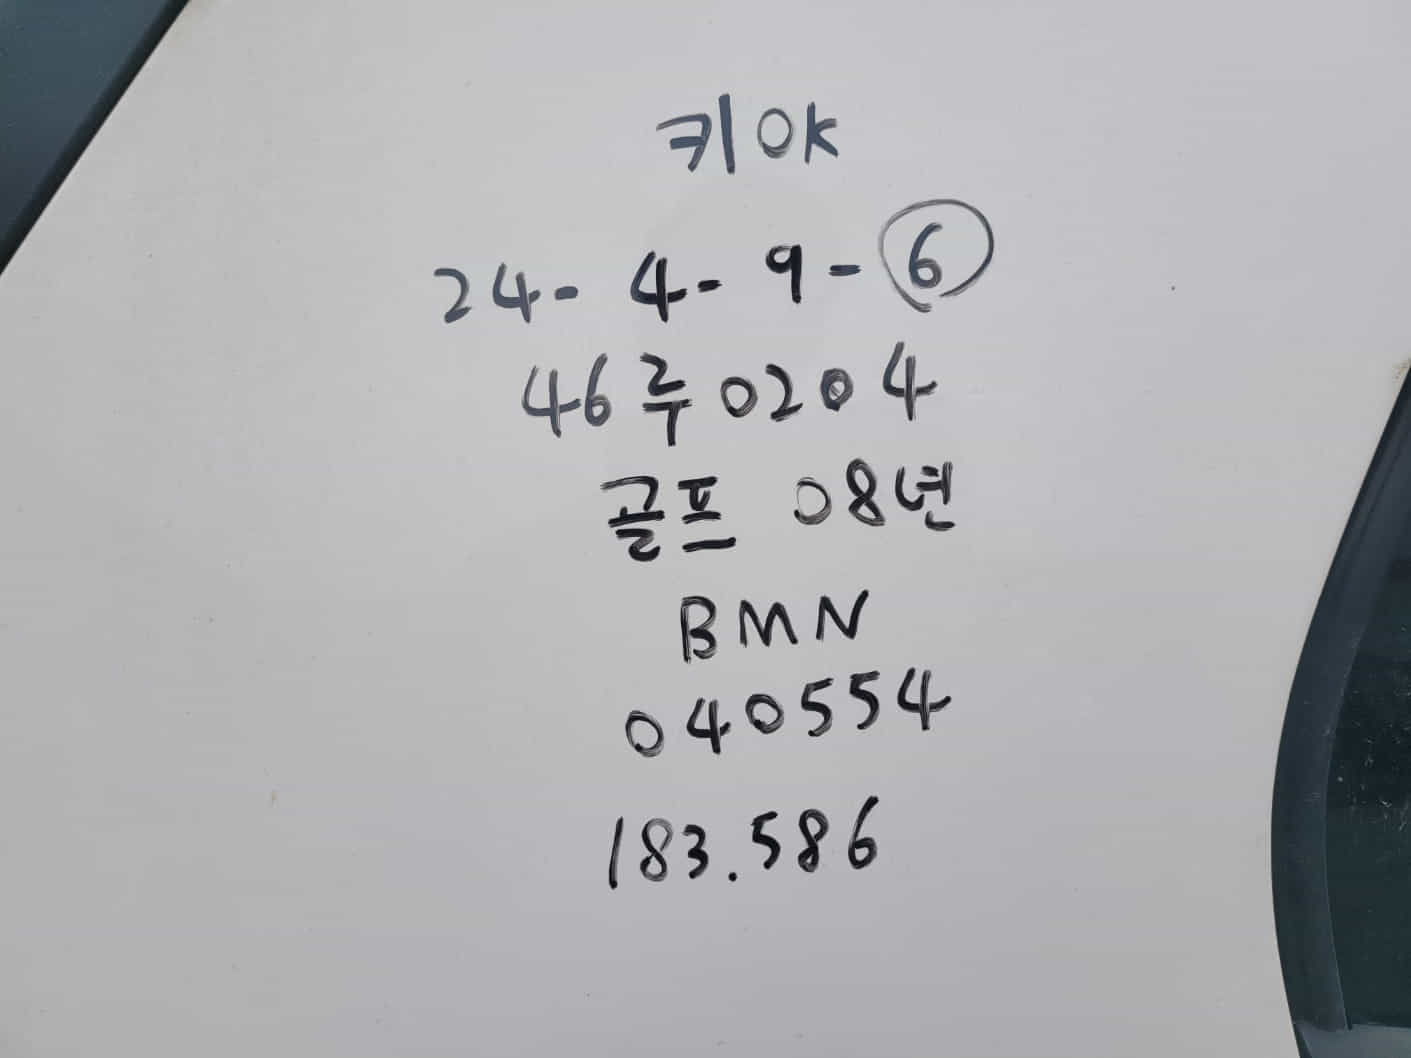 키 OK
24-4-9-⑥
46루0204
골프 08년
BMN
040554
183.586